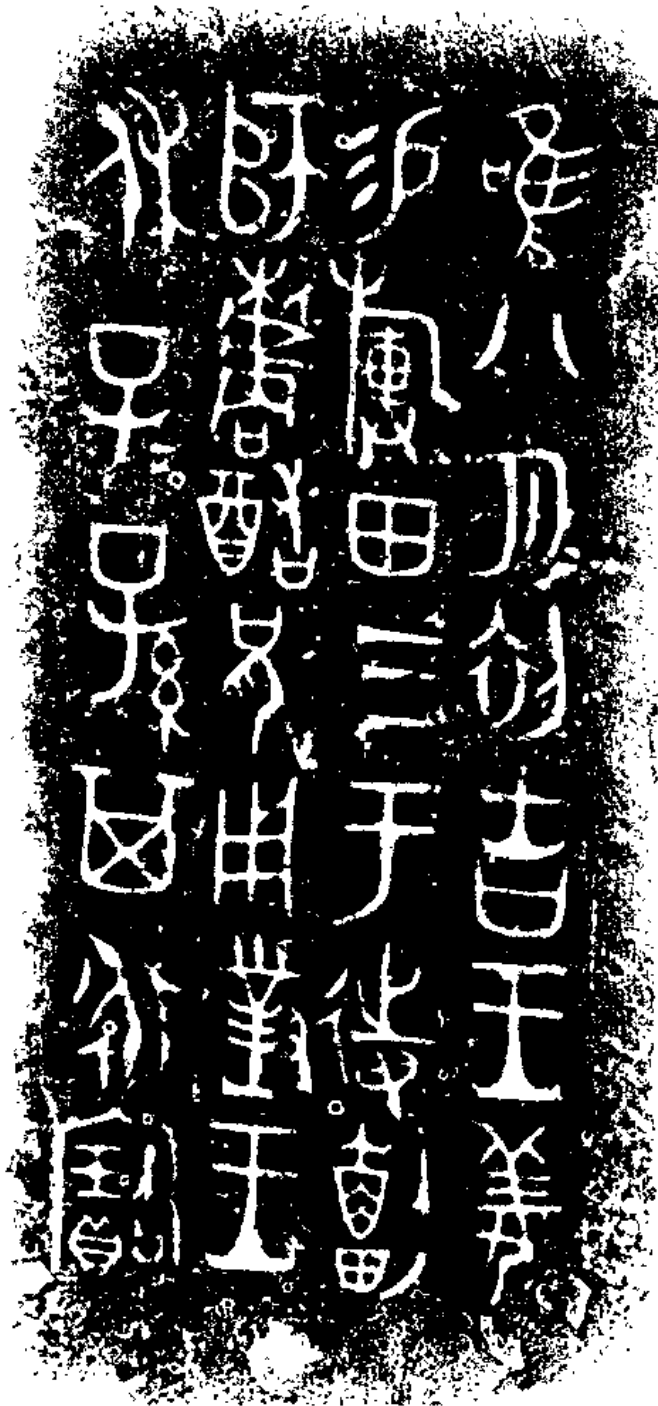 隹八月初吉王姜
易旟田三于待劃
師櫨酷兄用對王
休子子孫其永寶